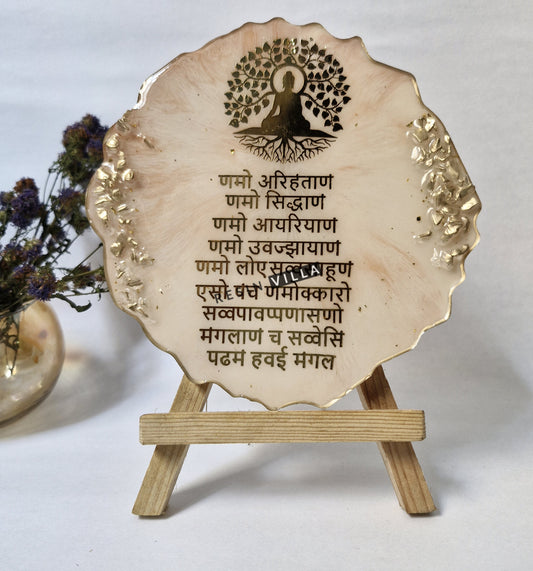 णमो अरिहंताणं
णमो सिद्धाणं
णमो आयरियाणं
णमो उवज्झायाणं
णमो लोए सव्व साहूणं
एसो पंच णमोक्कारो
सव्वपावप्पणासणो
मंगलाणं च सव्वेसिं
पढमं हवई मंगल
RESIN VILLA